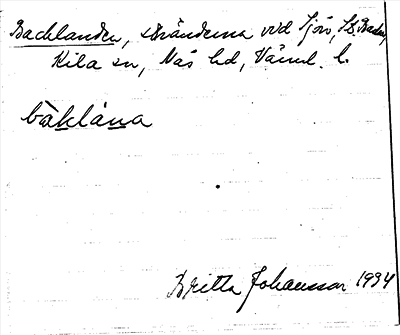 Backlanden, stränderna vid Sjön, St. Backen,
Kila sn, Näs hd, Värml. l.
bàklåna
Britta Johansson 1934